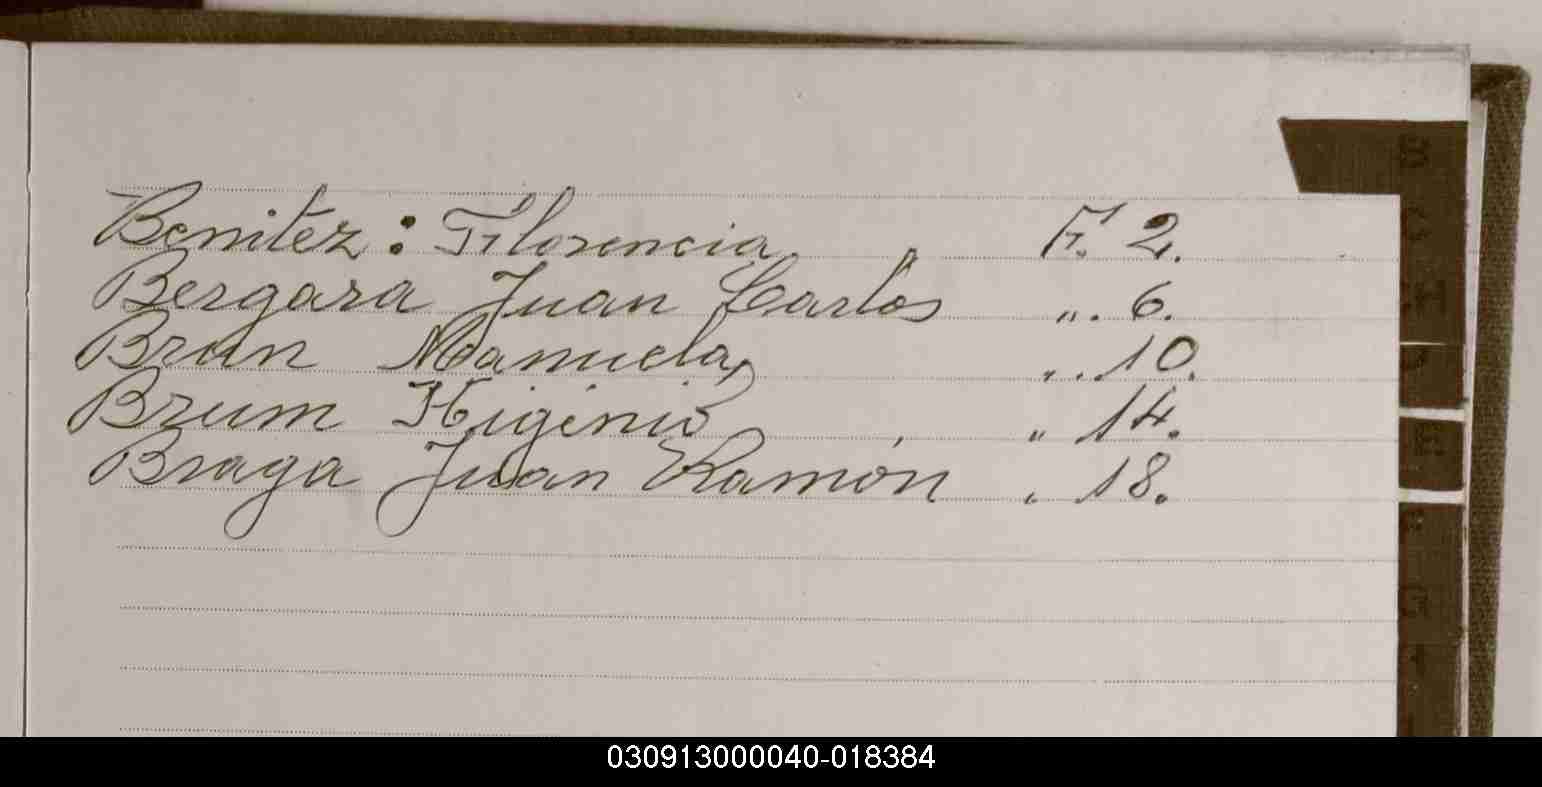 Benitez: Florencia F. 2.
Bergara Juan Carlos ". 6.
Brun Manuela ". 10.
Brum Higinio " 14.
Braga Juan Ramón " 18.
B
C
CH
D
E
F
G
030913000040-018384